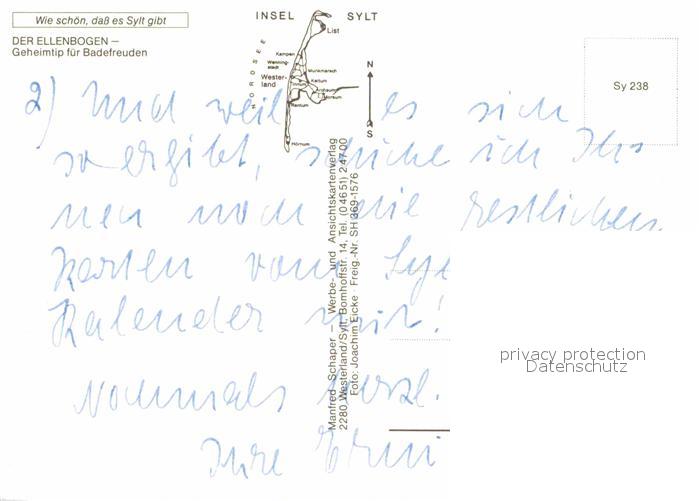 Wie schön, daß es Sylt gibt
DER ELLENBOGEN –
Geheimtip für Badefreuden
INSEL SYLT
NORDSEE
List
Kampen
Wenning-
stedt
Munkmarsch
Wester-
land
Keitum
Morsum
Rantum
Hörnum
N
S
Sy 238
2) Und weil es sich
so ergibt, schicke ich Ih-
nen noch die restlichen
Karten vom Sylt
Kalender mit!
Nochmals herzl.
Ihre
Manfred Schaper – Werbe- und Ansichtskartenverlag
2280 Westerland/Sylt, Bomhoffstr. 14, Tel. (0 46 51) 2 47 00
Foto: Joachim Eicke · Freig.-Nr. SH 369-1576
privacy protection
Datenschutz